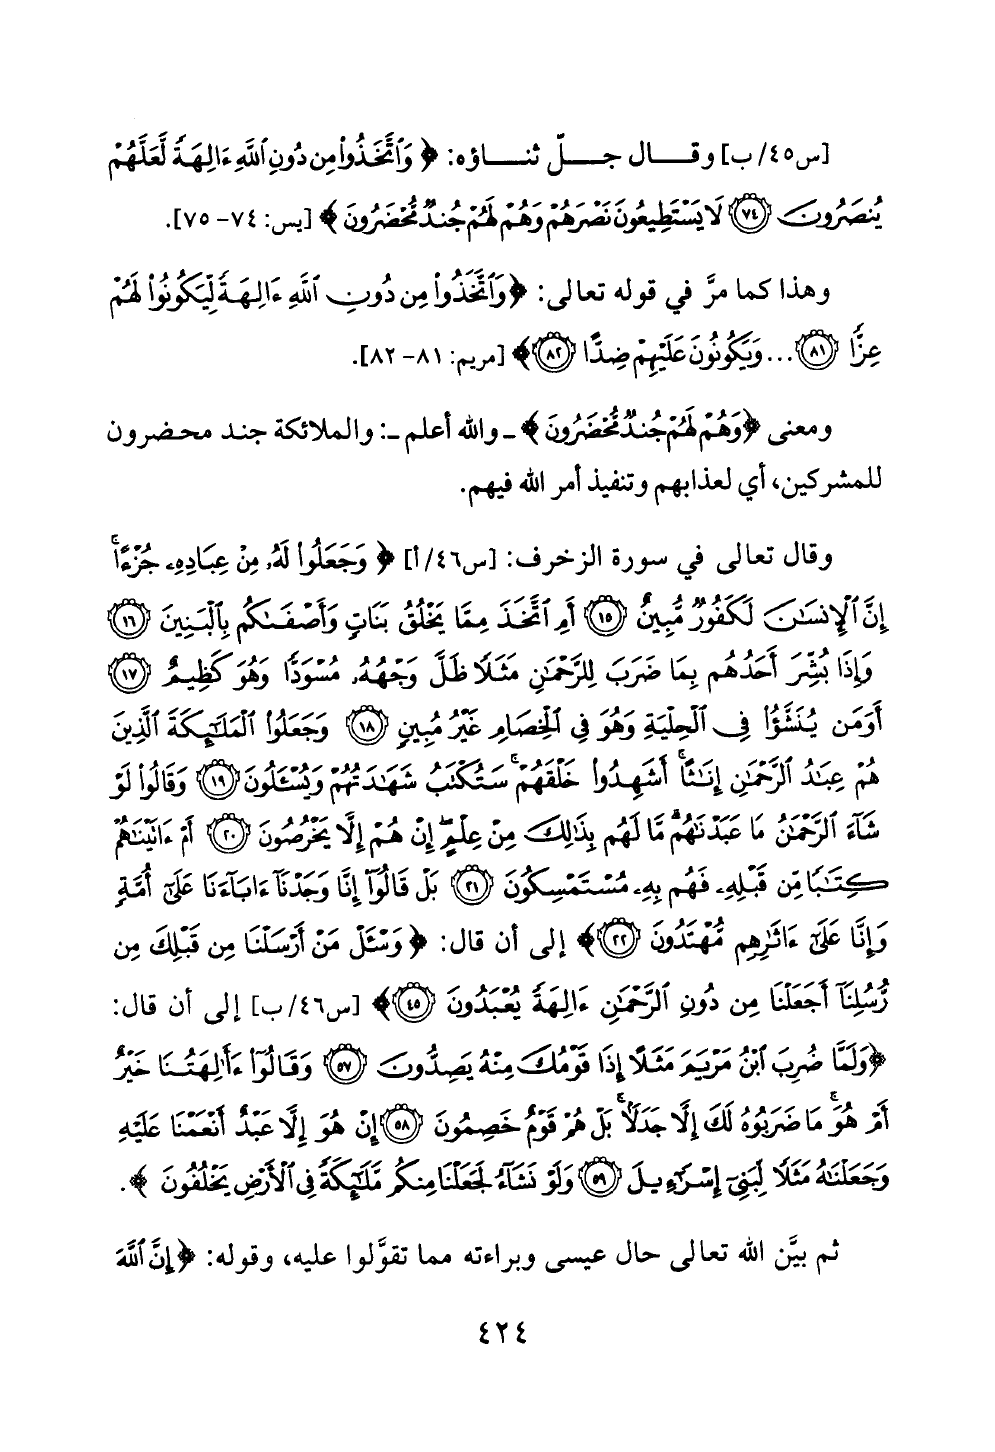 [س٤٥/ ب] وقـــال جـــلّ ثنـــاؤه: ﴿ وَٱتَّخَذُواْ مِن دُونِ ٱللَّهِ ءَالِهَةٗ لَّعَلَّهُمْ
يُنصَرُونَ ﴿٧٤﴾ لَا يَسْتَطِيعُونَ نَصْرَهُمْ وَهُمْ لَهُمْ جُندٞ مُّحْضَرُونَ ﴾ [يس: ٧٤- ٧٥].
وهذا كما مرَّ في قوله تعالى: ﴿وَٱتَّخَذُواْ مِن دُونِ ٱللَّهِ ءَالِهَةٗ لِّيَكُونُواْ لَهُمْ
عِزّٗا ﴿٨١﴾ ... وَيَكُونُونَ عَلَيْهِمْ ضِدًّا ﴿٨٢﴾﴾ [مريم: ٨١- ٨٢].
ومعنى ﴿وَهُمْ لَهُمْ جُندٞ مُّحْضَرُونَ ﴾ ـ والله أعلم ـ: والملائكة جند محضرون
للمشركين، أي لعذابهم وتنفيذ أمر الله فيهم.
وقال تعالى في سورة الزخرف: [س٤٦/ أ] ﴿ وَجَعَلُواْ لَهُۥ مِنْ عِبَادِهِۦ جُزْءًاۚ
إِنَّ ٱلْإِنسَٰنَ لَكَفُورٞ مُّبِينٌ ﴿١٥﴾ أَمِ ٱتَّخَذَ مِمَّا يَخْلُقُ بَنَاتٖ وَأَصْفَىٰكُم بِٱلْبَنِينَ ﴿١٦﴾
وَإِذَا بُشِّرَ أَحَدُهُم بِمَا ضَرَبَ لِلرَّحْمَٰنِ مَثَلٗا ظَلَّ وَجْهُهُۥ مُسْوَدّٗا وَهُوَ كَظِيمٌ ﴿١٧﴾
أَوَمَن يُنَشَّؤُاْ فِي ٱلْحِلْيَةِ وَهُوَ فِي ٱلْخِصَامِ غَيْرُ مُبِينٖ ﴿١٨﴾ وَجَعَلُواْ ٱلْمَلَٰٓئِكَةَ ٱلَّذِينَ
هُمْ عِبَٰدُ ٱلرَّحْمَٰنِ إِنَٰثًاۚ أَشَهِدُواْ خَلْقَهُمْۚ سَتُكْتَبُ شَهَٰدَتُهُمْ وَيُسْـَٔلُونَ ﴿١٩﴾ وَقَالُواْ لَوْ
شَآءَ ٱلرَّحْمَٰنُ مَا عَبَدْنَٰهُمۗ مَّا لَهُم بِذَٰلِكَ مِنْ عِلْمٍۖ إِنْ هُمْ إِلَّا يَخْرُصُونَ ﴿٢٠﴾ أَمْ ءَاتَيْنَٰهُمْ
كِتَٰبٗا مِّن قَبْلِهِۦ فَهُم بِهِۦ مُسْتَمْسِكُونَ ﴿٢١﴾ بَلْ قَالُوٓاْ إِنَّا وَجَدْنَآ ءَابَآءَنَا عَلَىٰٓ أُمَّةٖ
وَإِنَّا عَلَىٰٓ ءَاثَٰرِهِم مُّهْتَدُونَ ﴿٢٢﴾﴾ إلى أن قال: ﴿ وَسْـَٔلْ مَنْ أَرْسَلْنَا مِن قَبْلِكَ مِن
رُّسُلِنَآ أَجَعَلْنَا مِن دُونِ ٱلرَّحْمَٰنِ ءَالِهَةٗ يُعْبَدُونَ ﴿٤٥﴾﴾ [س٤٦/ ب] إلى أن قال:
﴿وَلَمَّا ضُرِبَ ٱبْنُ مَرْيَمَ مَثَلًا إِذَا قَوْمُكَ مِنْهُ يَصِدُّونَ ﴿٥٧﴾ وَقَالُوٓاْ ءَأَٰلِهَتُنَا خَيْرٌ
أَمْ هُوَۚ مَا ضَرَبُوهُ لَكَ إِلَّا جَدَلَۢاۚ بَلْ هُمْ قَوْمٌ خَصِمُونَ ﴿٥٨﴾ إِنْ هُوَ إِلَّا عَبْدٌ أَنْعَمْنَا عَلَيْهِ
وَجَعَلْنَٰهُ مَثَلٗا لِّبَنِيٓ إِسْرَٰٓءِيلَ ﴿٥٩﴾ وَلَوْ نَشَآءُ لَجَعَلْنَا مِنكُم مَّلَٰٓئِكَةٗ فِي ٱلْأَرْضِ يَخْلُفُونَ ﴾.
ثم بيَّن الله تعالى حال عيسى وبراءته مما تقوَّلوا عليه، وقوله: ﴿إِنَّ ٱللَّهَ
٤٢٤